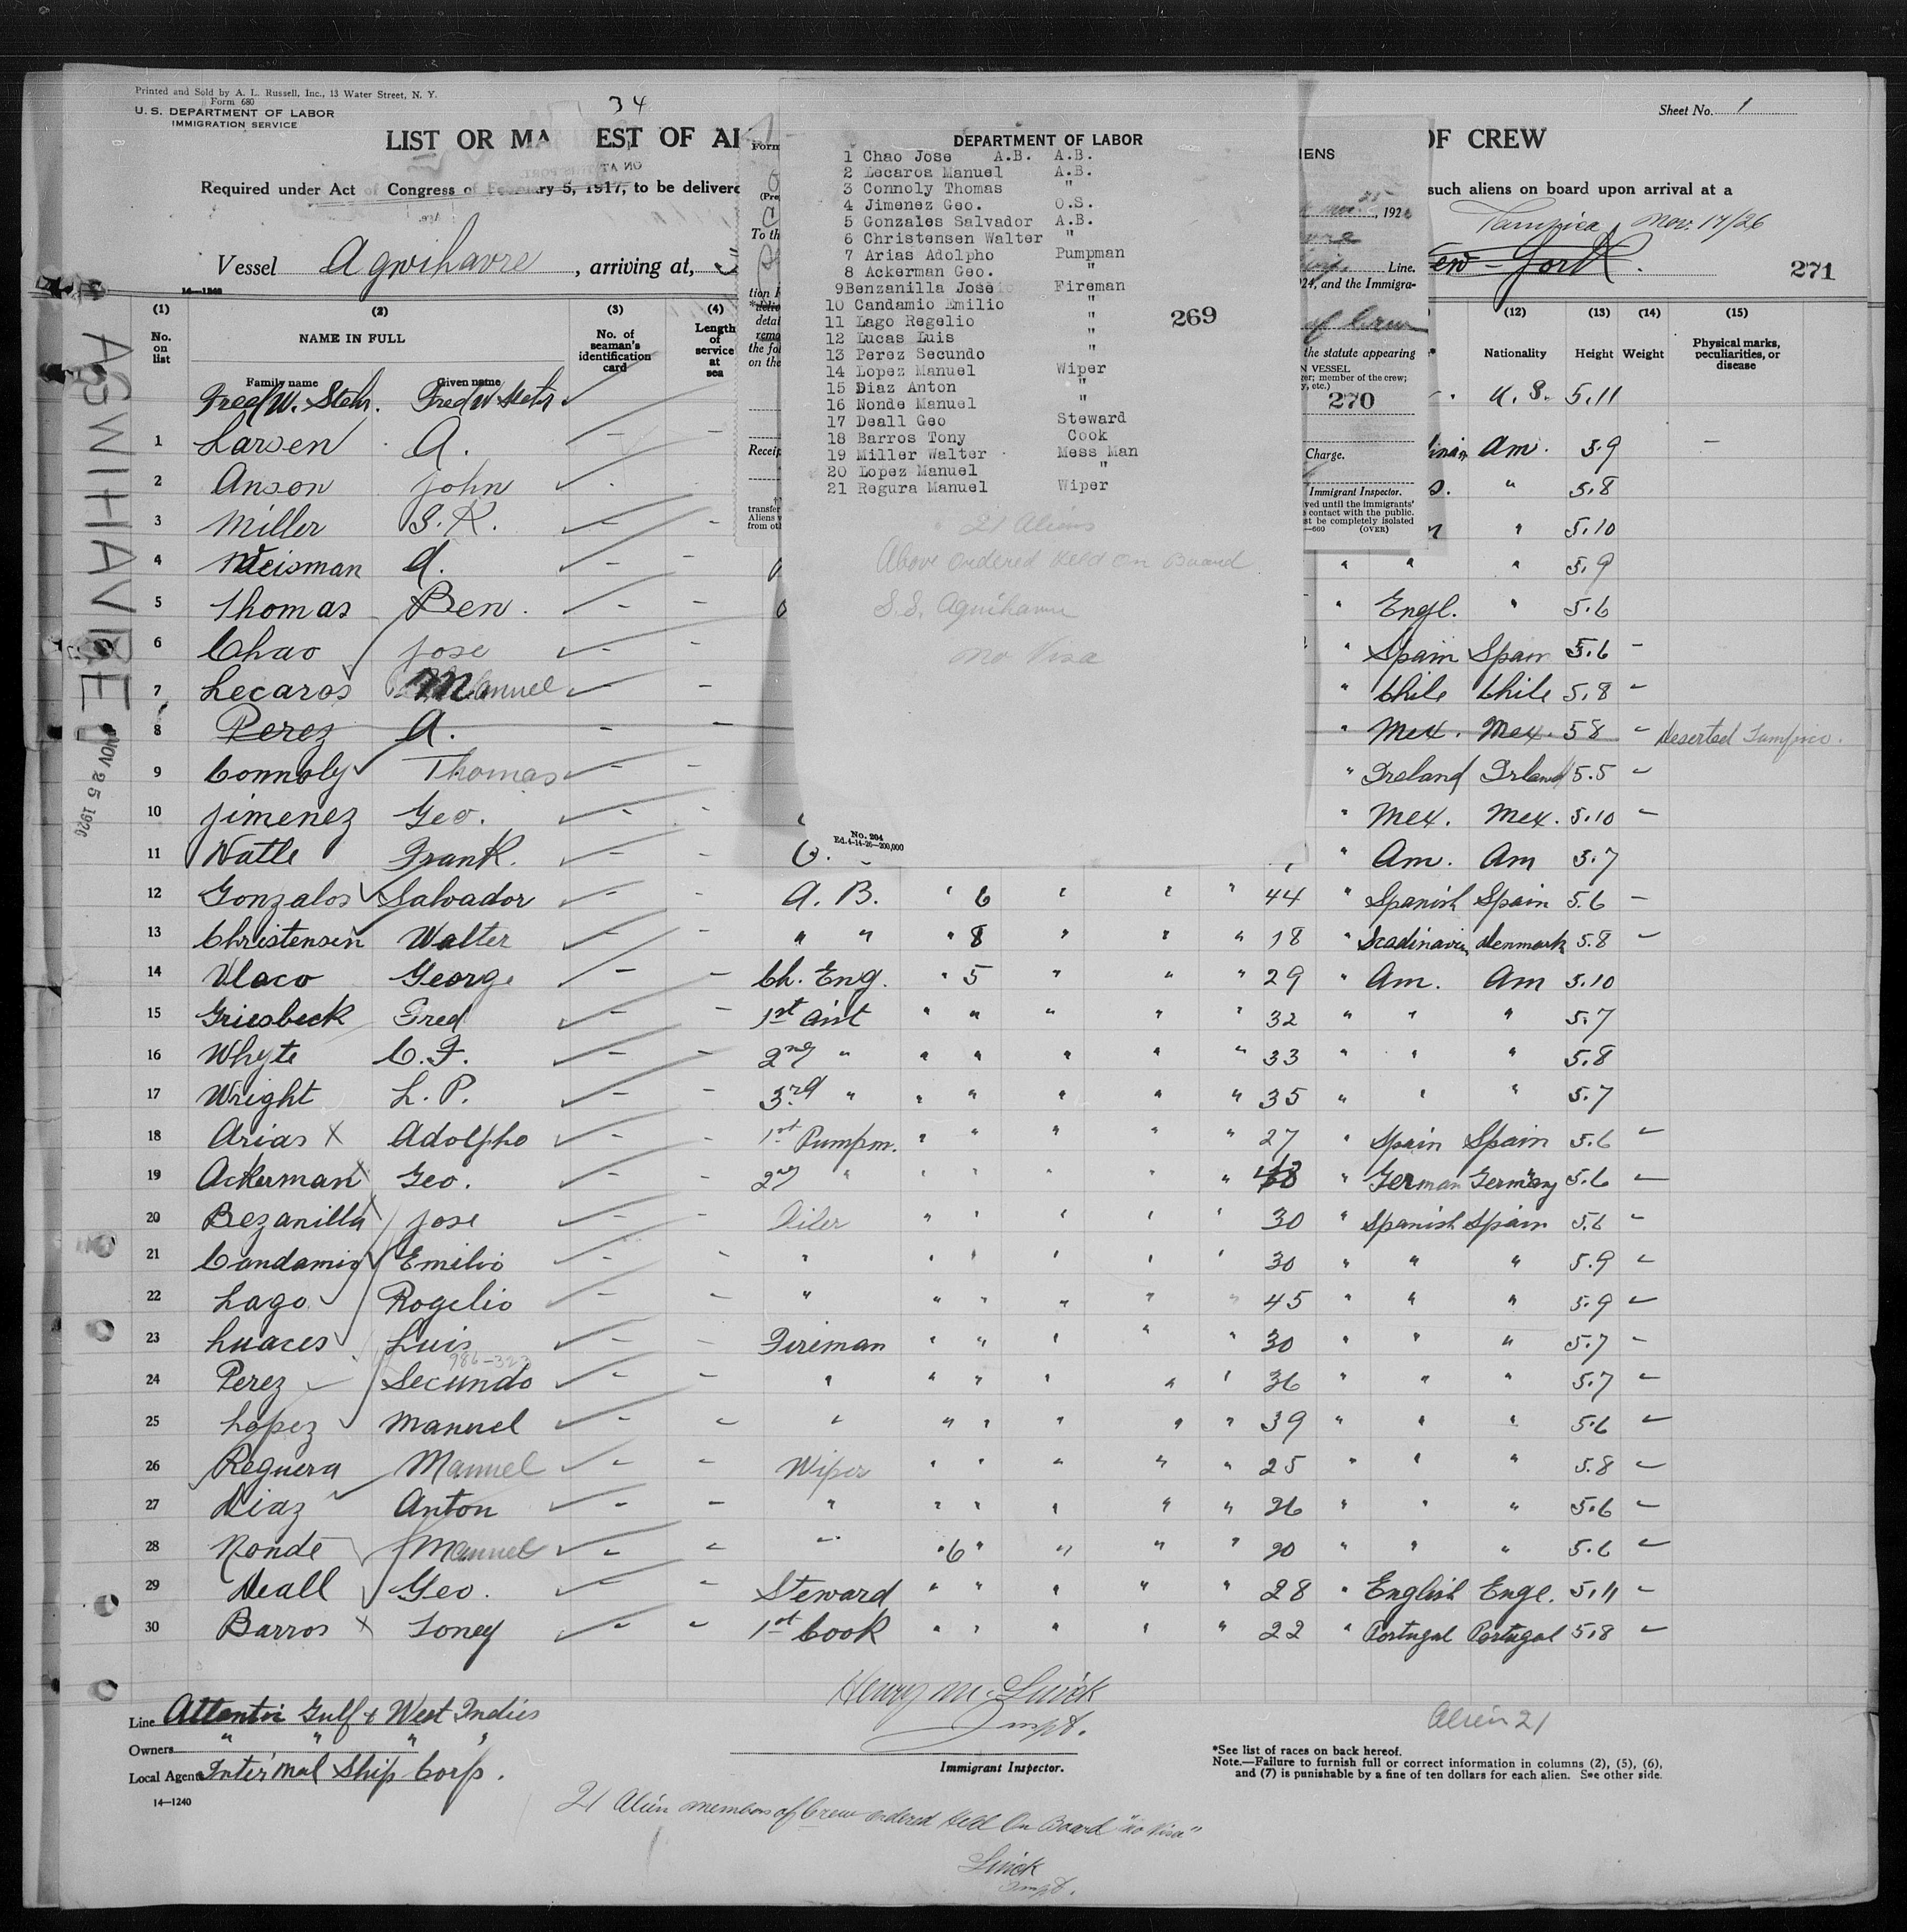 Printed and Sold by A. L. Russell, Inc., 13 Water Street, N. Y.
Form 680
U. S. DEPARTMENT OF LABOR
IMMIGRATION SERVICE
34
Sheet No. 1
LIST OR MA EST OF AL OF CREW
Required under Act of Congress of February 5, 1917, to be delivere such aliens on board upon arrival at a
Vessel Agwihavre, arriving at,
Tampico, Nov. 17/26
ew-York.
271
AGWIHAVRE
NOV 25 1926
DEPARTMENT OF LABOR
1 Chao Jose A.B. A.B.
2 Lecaros Manuel A.B.
3 Connoly Thomas "
4 Jimenez Geo. O.S.
5 Gonzales Salvador A.B.
6 Christensen Walter "
7 Arias Adolpho Pumpman
8 Ackerman Geo. "
9Benzanilla Jose Fireman
10 Candamio Emilio "
11 Lago Regelio "
12 Lucas Luis "
13 Perez Secundo "
14 Lopez Manuel Wiper
15 Diaz Anton "
16 Nonde Manuel "
17 Deall Geo Steward
18 Barros Tony Cook
19 Miller Walter Mess Man
20 Lopez Manuel "
21 Regura Manuel Wiper
269
21 Aliens
Above ordered held on Board
S.S. Agwihavre
no Visa
No. 204
Ed. 4-14-26-200,000
IENS
, 192
Line.
24, and the Immigra-
of Crew
the statute appearing
N VESSEL
er; member of the crew;
y, etc.)
270
Charge.
Immigrant Inspector.
ved until the immigrants'
s contact with the public.
st be completely isolated
—660 (OVER)
Form
To th
tion
detai
rema
the fol
on the
Receip
transfer
Aliens
from ot
14—1240
(1) (2) (3) (4) (12) (13) (14) (15)
No. on list
NAME IN FULL
Family name Given name
No. of seaman's identification card
Length of service at sea
Nationality Height Weight
Physical marks, peculiarities, or disease
Fred W. Stehr. Fred W Stehr U. S. 5.11
1 Larsen A. – – Am. 5.9 –
2 Anson John " 5.8
3 Miller G. K. – – " 5.10
4 Meisman A. – – " " " 5.9
5 Thomas Ben. – – " Engl. " 5.6
6 Chao Jose – – " Spain Spain 5.6 –
7 Lecaros Manuel – – " Chile Chile 5.8 –
8 Perez A. – – " Mex. Mex. 5 8 – Deserted Tampico.
9 Connoly Thomas – – " Ireland Irland 5.5 –
10 Jimenez Geo. – – " Mex. Mex. 5.10 –
11 Natle Frank. – – " Am. Am 5.7
12 Gonzalos Salvador – – A. B. " 6 " " " 44 " Spanish Spain 5.6 –
13 Christensen Walter – – " " " 8 " " " 18 " Scadinavin Denmark 5.8 –
14 Vlaco George – – Ch. Eng. " 5 " " " 29 " Am. Am 5.10
15 Griesbeck Fred – – 1st " " " " " 32 " " " 5.7
16 Whyte C. F. – – 2nd " " " " " " 33 " " " 5.8
17 Wright L. P. – – 3rd " " " " " " 35 " " " 5.7
18 Arias X Adolpho – – 1st Pumpm. " " " " " 27 " Spain Spain 5.6 –
19 Ackerman Geo. – – 2nd " " " " " " " German Germany 5.6 –
20 Bezanilla Jose – – Oiler " " " " " 30 " Spanish Spain 5.6 –
21 Candamio Emilio – – " " " " " " 30 " " " 5.9 –
22 Lago Rogelio – – " " " " " " 45 " " " 5.9 –
23 Luaces Luis – – Fireman " " " " " 30 " " " 5.7 –
986-323
24 Perez Secundo – – " " " " " " 36 " " " 5.7 –
25 Lopez Manuel – – " " " " " " 39 " " " 5.6 –
26 Reguera Manuel – – Wiper " " " " " 25 " " " 5.8 –
27 Diaz Anton – – " " " " " " 26 " " " 5.6 –
28 Nonde Manuel – – " " 6 " " " " 20 " " " 5.6 –
29 Deall Geo. – – Steward " " " " " 28 " English Engl. 5.11 –
30 Barros X Toney – – 1st Cook " " " " " 22 " Portugal Portugal 5.8 –
Line Atlantic Gulf & West Indies
Owners " " " "
Local Agents Inter'nal Ship Corp.
14—1240
Henry M. Linick
Inspt.
Immigrant Inspector.
Alien 21
*See list of races on back hereof.
Note.—Failure to furnish full or correct information in columns (2), (5), (6), and (7) is punishable by a fine of ten dollars for each alien. See other side.
21 Alien members of Crew ordered held On Board "no Visa"
Linick
Inspt.